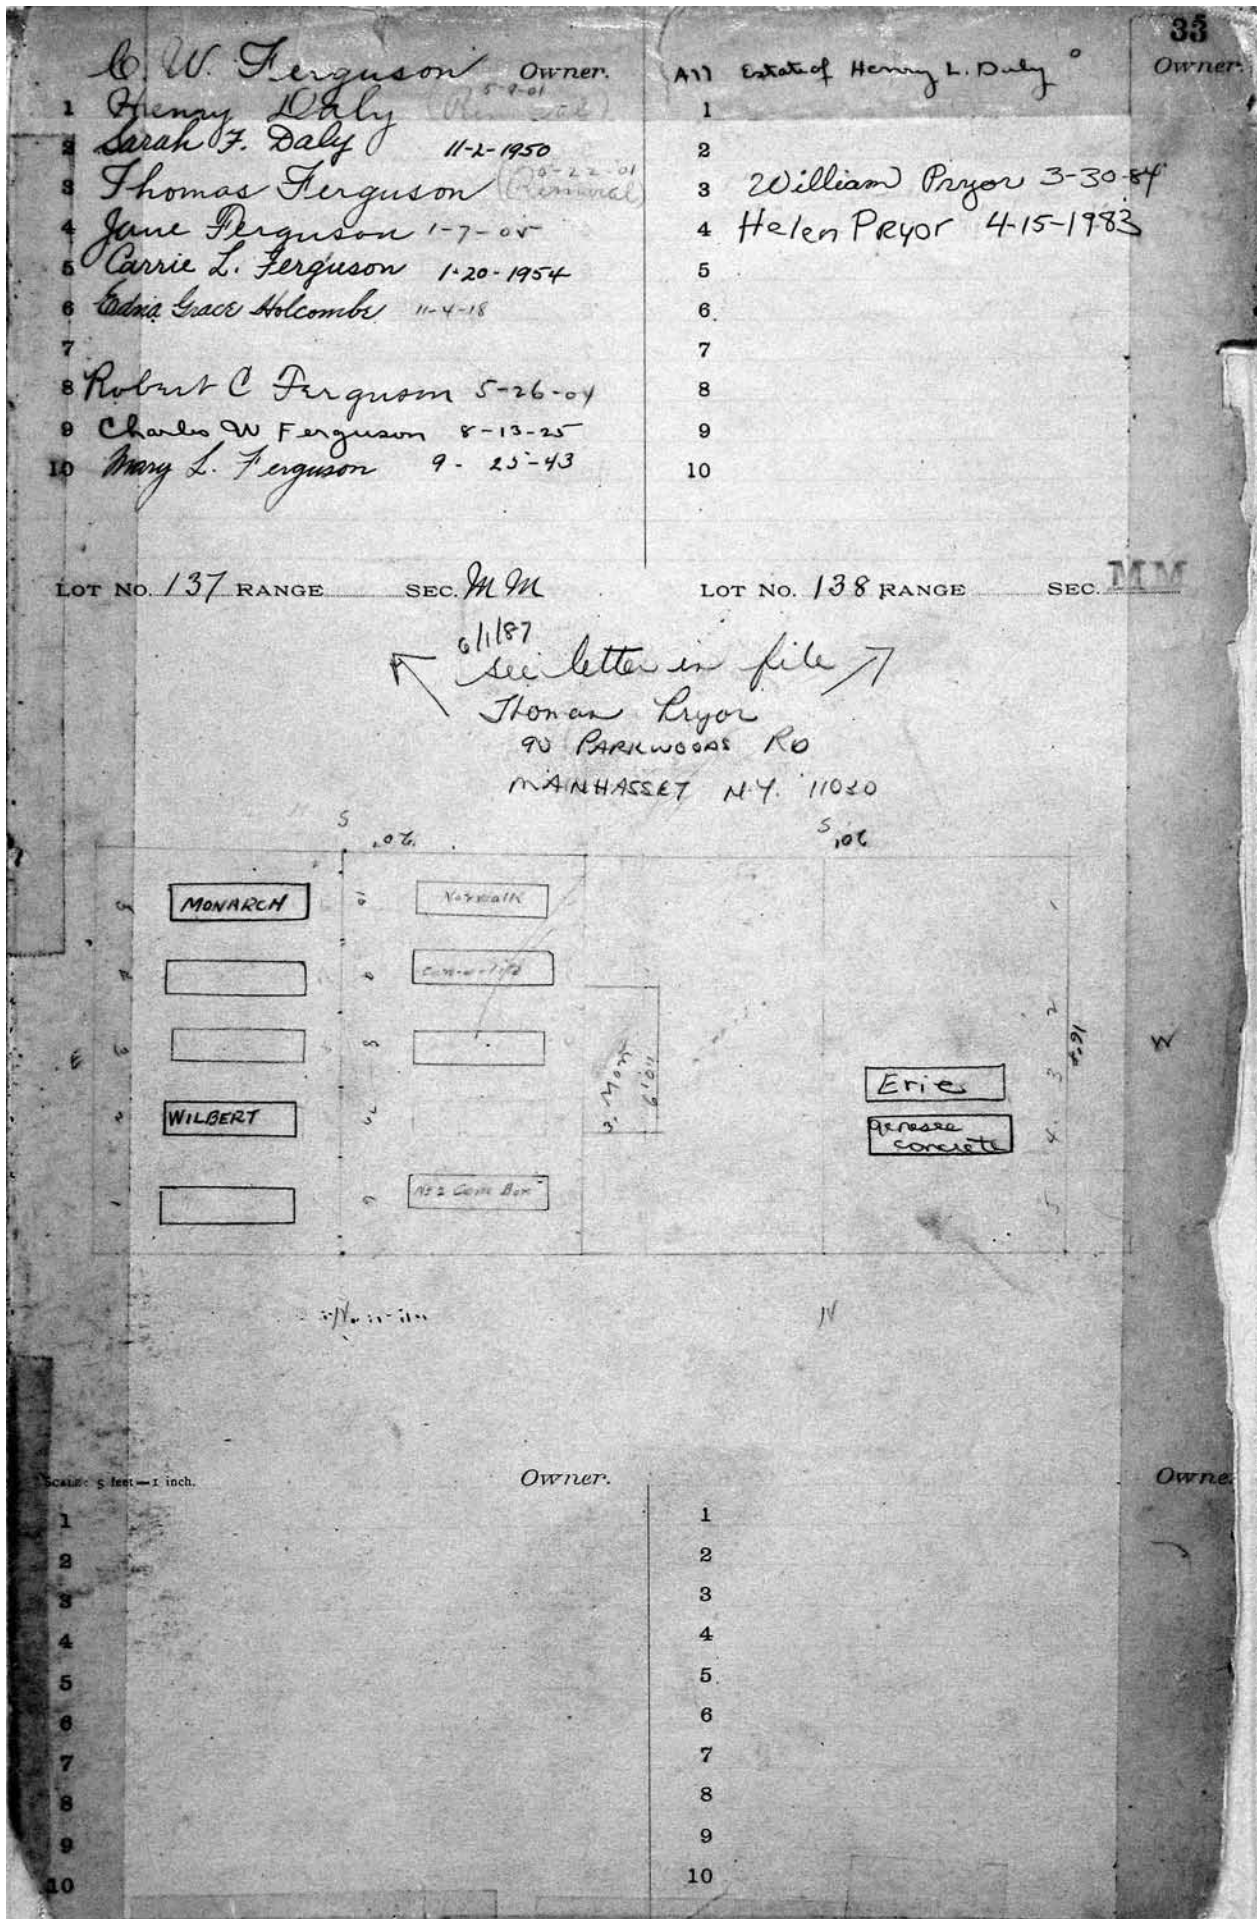 35
C. W. Ferguson Owner.
1 Henry Daly 5-9-01 (Removal)
2 Sarah F. Daly 11-2-1950
3 Thomas Ferguson 5-22-01 (Removal)
4 Jane Ferguson 1-7-05
5 Carrie L. Ferguson 1-20-1954
6 Edna Grace Holcombe 11-4-18
7
8 Robert C Ferguson 5-26-04
9 Charles W Ferguson 8-13-25
10 Mary L. Ferguson 9-25-43
LOT NO. 137 RANGE SEC. M M
All Estate of Henry L. Daly Owner.
1
2
3 William Pryor 3-30-84
4 Helen Pryor 4-15-1983
5
6
7
8
9
10
LOT NO. 138 RANGE SEC. MM
6/1/87
see letter in file
Thomas Pryor
90 PARKWOODS RD
MANHASSET N.Y. 11030
S 20' S 20'
MONARCH Norwalk
10
9
E 8 W
2 WILBERT
3 Erie
4 genesee
concrete
1 2 3 4 5
N
SCALE: 5 feet—1 inch.
Owner. Owne
1 1
2 2
3 3
4 4
5 5
6 6
7 7
8 8
9 9
10 10